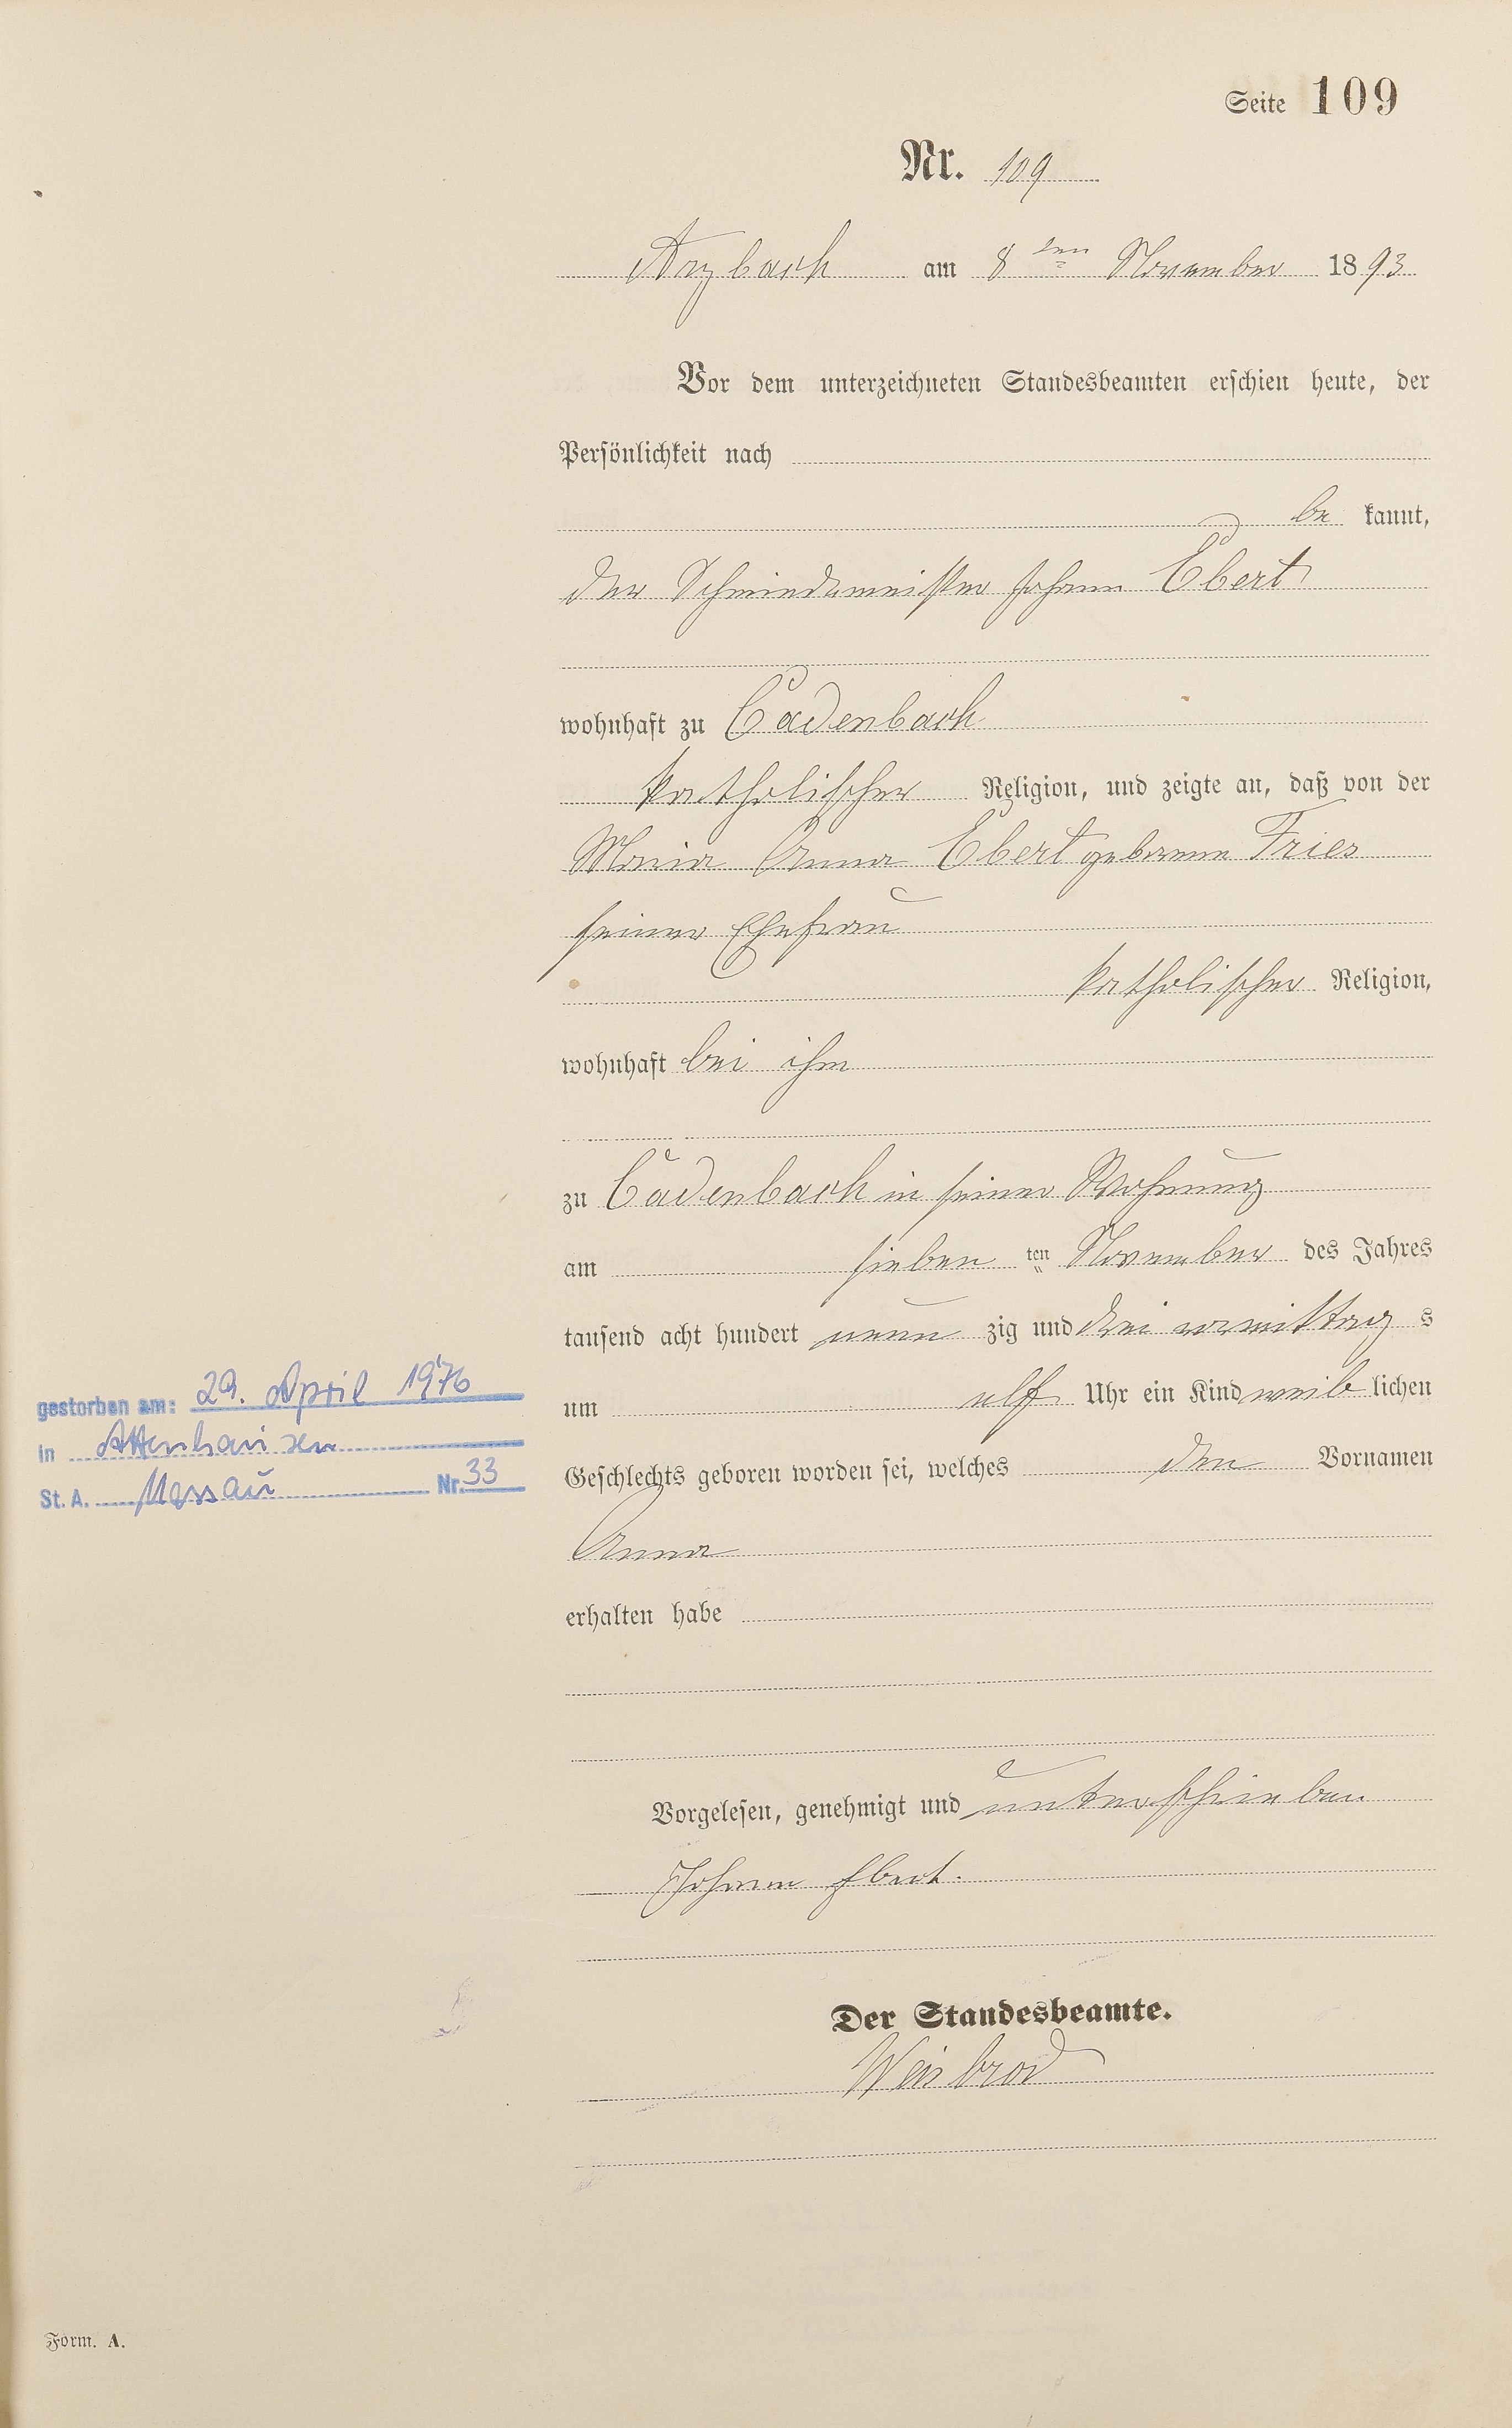 Seite 109
Nr. 109
Arzbach am 8ten November 1893
Vor dem unterzeichneten Standesbeamten erschien heute, der
Persönlichkeit nach
be kannt,
der Schmiedemeister Johann Ebert
wohnhaft zu Cadenbach
katholischer Religion, und zeigte an, daß von der
Maria Anna Ebert geborenen Fries
seiner Ehefrau
katholischer Religion,
wohnhaft bei ihm
zu Cadenbach in seiner Wohnung
am sieben ten November des Jahres
tausend acht hundert neun zig und drei vormittag s
um elf Uhr ein Kind weib lichen
Geschlechts geboren worden sei, welches den Vornamen
Anna
erhalten habe
Vorgelesen, genehmigt und unterschrieben
Johann Ebert.
Der Standesbeamte.
Weisbrod
gestorben am: 29. April 1976
in Attenhausen
St. A. Nassau Nr. 33
Form. A.